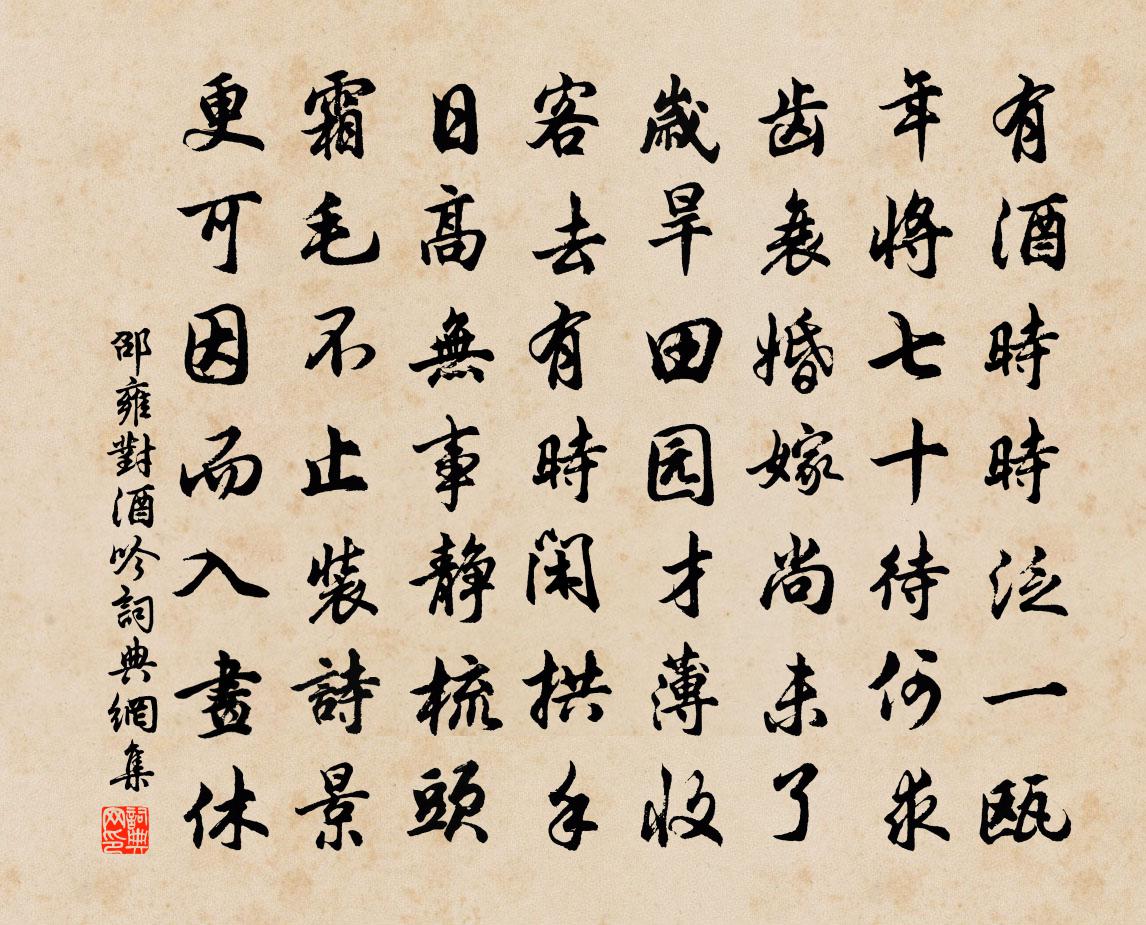 有酒時時泛一甌
年將七十待何求
齿衰婚嫁尚未了
歲旱田园才薄收
客去有時閑拱手
日高無事静梳頭
霜毛不止裝詩景
更可因而入畫休
邵雍對酒吟詞典網集
詞典网印